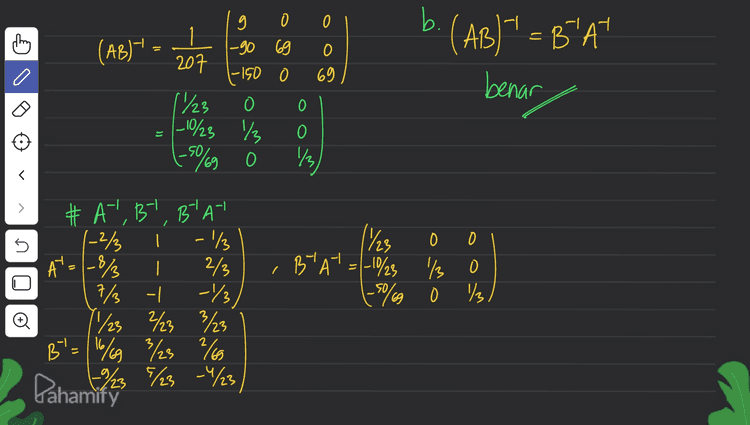 (AB)⁻¹ = 1/207 (9 0 0
-90 69 0
-150 0 69)
= (1/23 0 0
-10/23 1/3 0
-50/69 0 1/3)
b. (AB)⁻¹ = B⁻¹A⁻¹
benar
# A⁻¹, B⁻¹, B⁻¹A⁻¹
A⁻¹ = (-2/3 1 -1/3
-8/3 1 2/3
7/3 -1 -1/3)
, B⁻¹A⁻¹ = (1/23 0 0
-10/23 1/3 0
-50/69 0 1/3)
B⁻¹ = (1/23 2/23 3/23
16/69 3/23 2/69
-9/23 5/23 -4/23)
Pahamify